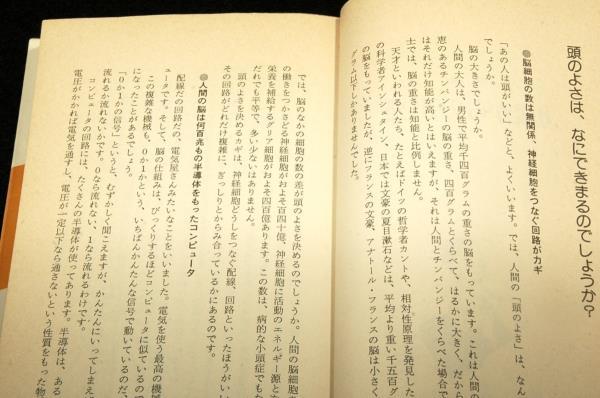 頭のよさは、なにできまるのでしょうか？
●脳細胞の数は無関係、神経細胞をつなぐ回路がカギ
「あの人は頭がいい」などと、よくいいます。では、人間の「頭のよさ」は、なん
でしょうか。
脳の大きさでしょうか。
人間の大人は、男性で平均千四百グラムの重さの脳をもっています。これは人間の
恵のあるチンパンジーの脳の重さ、四百グラムとくらべて、はるかに大きく、だから
はそれだけ知能が高いとはいえますが、それは人間とチンパンジーをくらべた場合で
士では、脳の重さは知能と比例しません。
天才といわれる人たち、たとえばドイツの哲学者カントや、相対性原理を発見した
の科学者アインシュタイン、日本では文豪の夏目漱石などは、平均より重い千五百グ
の脳をもっていましたが、逆にフランスの文豪、アナトール・フランスの脳は小さく、
グラム以下しかありませんでした。
では、脳のなかの細胞の数の差が頭のよさを決めるのでしょうか。人間の脳細胞
の働きをつかさどる神経細胞がおよそ百四十億、神経細胞に活動のエネルギー源と
栄養を補給するグリア細胞がおよそ四百億あります。この数は、病的な小頭症でも
だれでも平等で、多い少ないはありません。
頭のよさを決めるカギは、神経細胞どうしをつなぐ配線、回路といったほうがいい
その回路がどれだけ複雑に、ぎっしりとからみ合っているかにあるのです。
●人間の脳は何百兆もの半導体をもったコンピュータ
配線だの回路だの、電気屋さんみたいなことをいいました。電気を使う最高の機械
ュータです。そして、脳の仕組みは、びっくりするほどコンピュータに似ているので
この複雑な機械も、0か1かという、いちばんかんたんな信号で動いているのだ、
になったことがあるでしょう。
「0か1かの信号」というと、むずかしく聞こえますが、かんたんにいってしまえ
流れるか流れないかです。0なら流れない、1なら流れるわけです。
コンピュータの回路には、たくさんの半導体が使ってあります。半導体は、ある
電圧がかかれば電気を通すし、電圧が一定以下なら通さないという性質をもった物